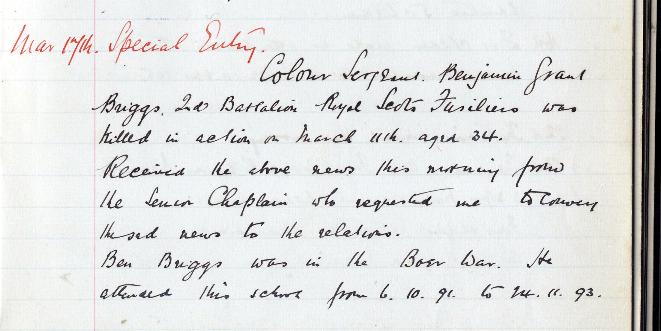 Mar 17th. Special Entry.
Colour Sergeant. Benjamin Grant
Briggs. 2nd Battalion Royal Scots Fusiliers was
killed in action on March 11th. aged 34.
Received the above news this morning from
the Senior Chaplain who requested me to convey
the sad news to the relations.
Ben Briggs was in the Boer War. He
attended this school from 6. 10. 91. to 24. 11. 93.